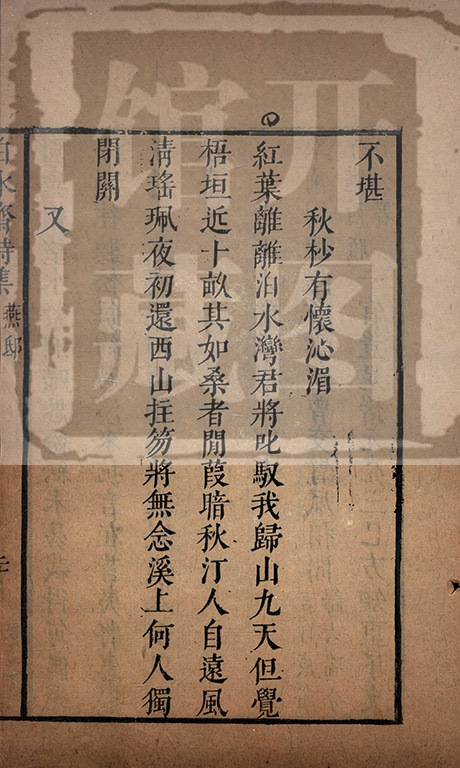 不堪
秋杪有懷沁湄
紅葉離離泊水灣君將叱馭我歸山九天但覺
梧垣近十畝其如桑者閒葭暗秋汀人自遠風
淸瑤珮夜初還西山拄笏將無念溪上何人獨
閉關
又
白水齋詩集 燕邸